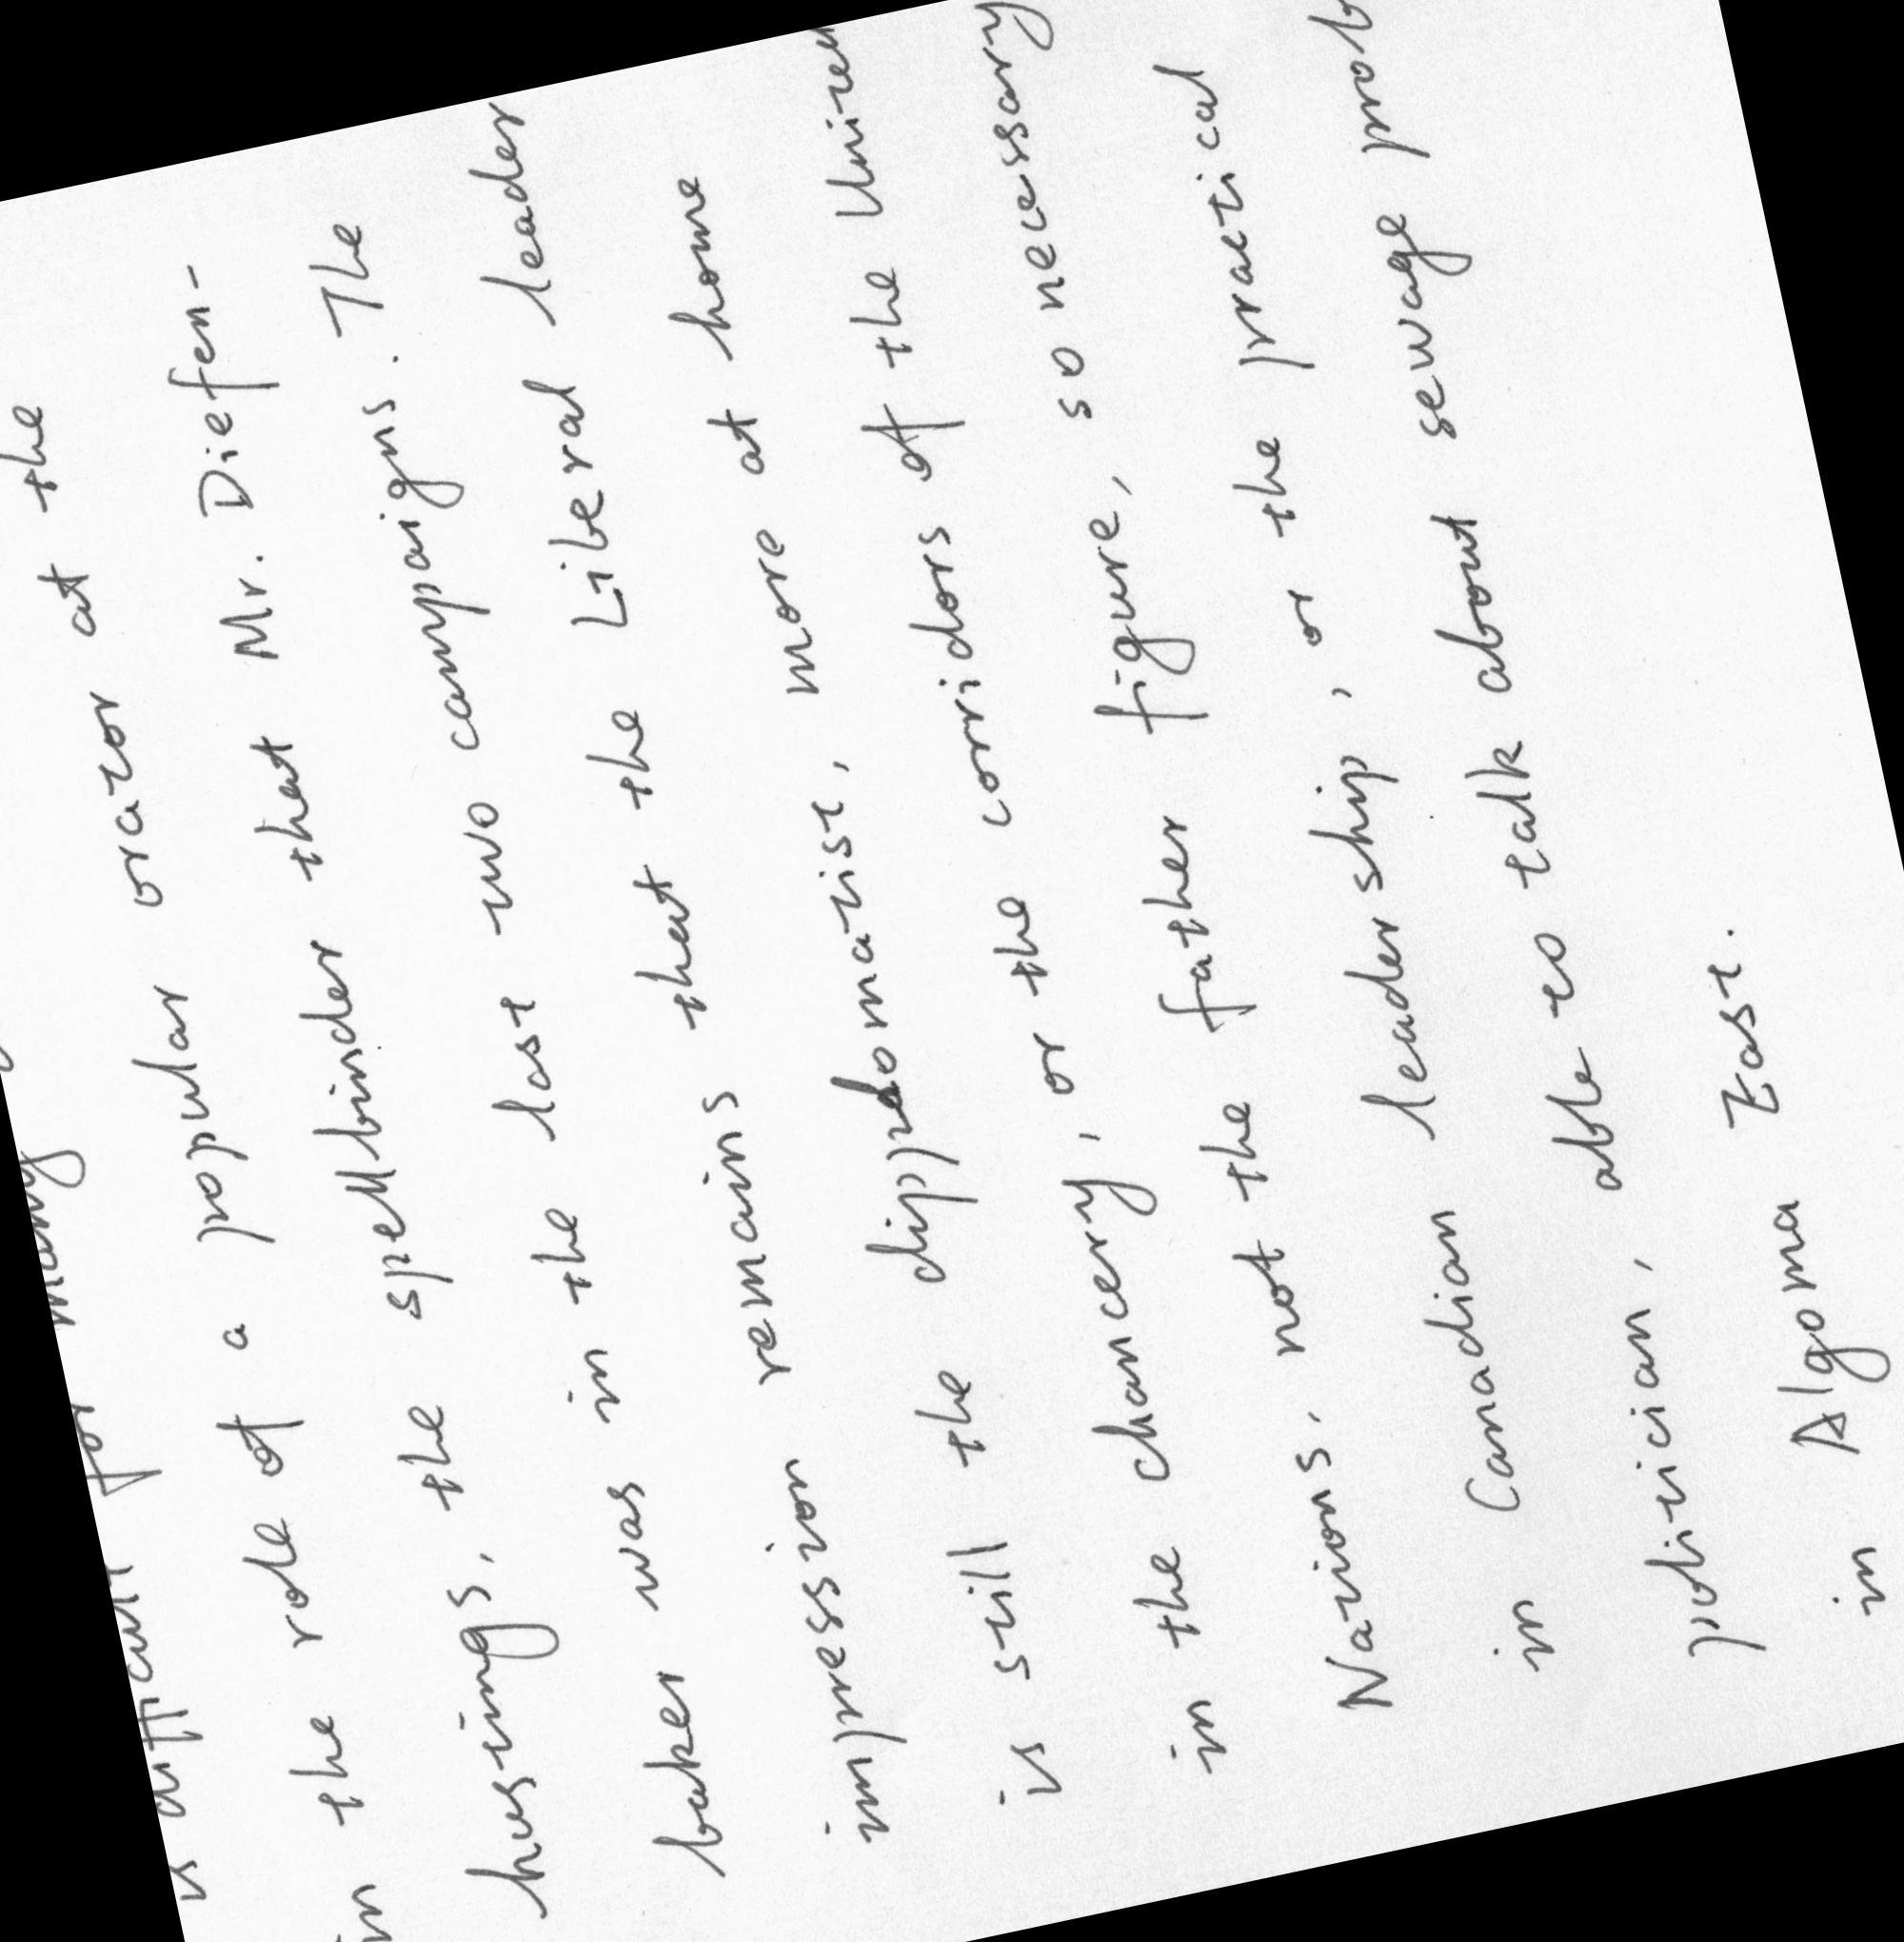 is difficult for many
in the role of a popular orator at the
hustings, the spellbinder that Mr. Diefen-
baker was in the last two campaigns. The
impression remains that the Liberal leader
is still the diplomatist, more at home
in the chancery, or the corridors of the United
Nations, not the father figure, so necessary
in Canadian leadership, or the practical
politician, able to talk about sewage prob
in Algoma East.